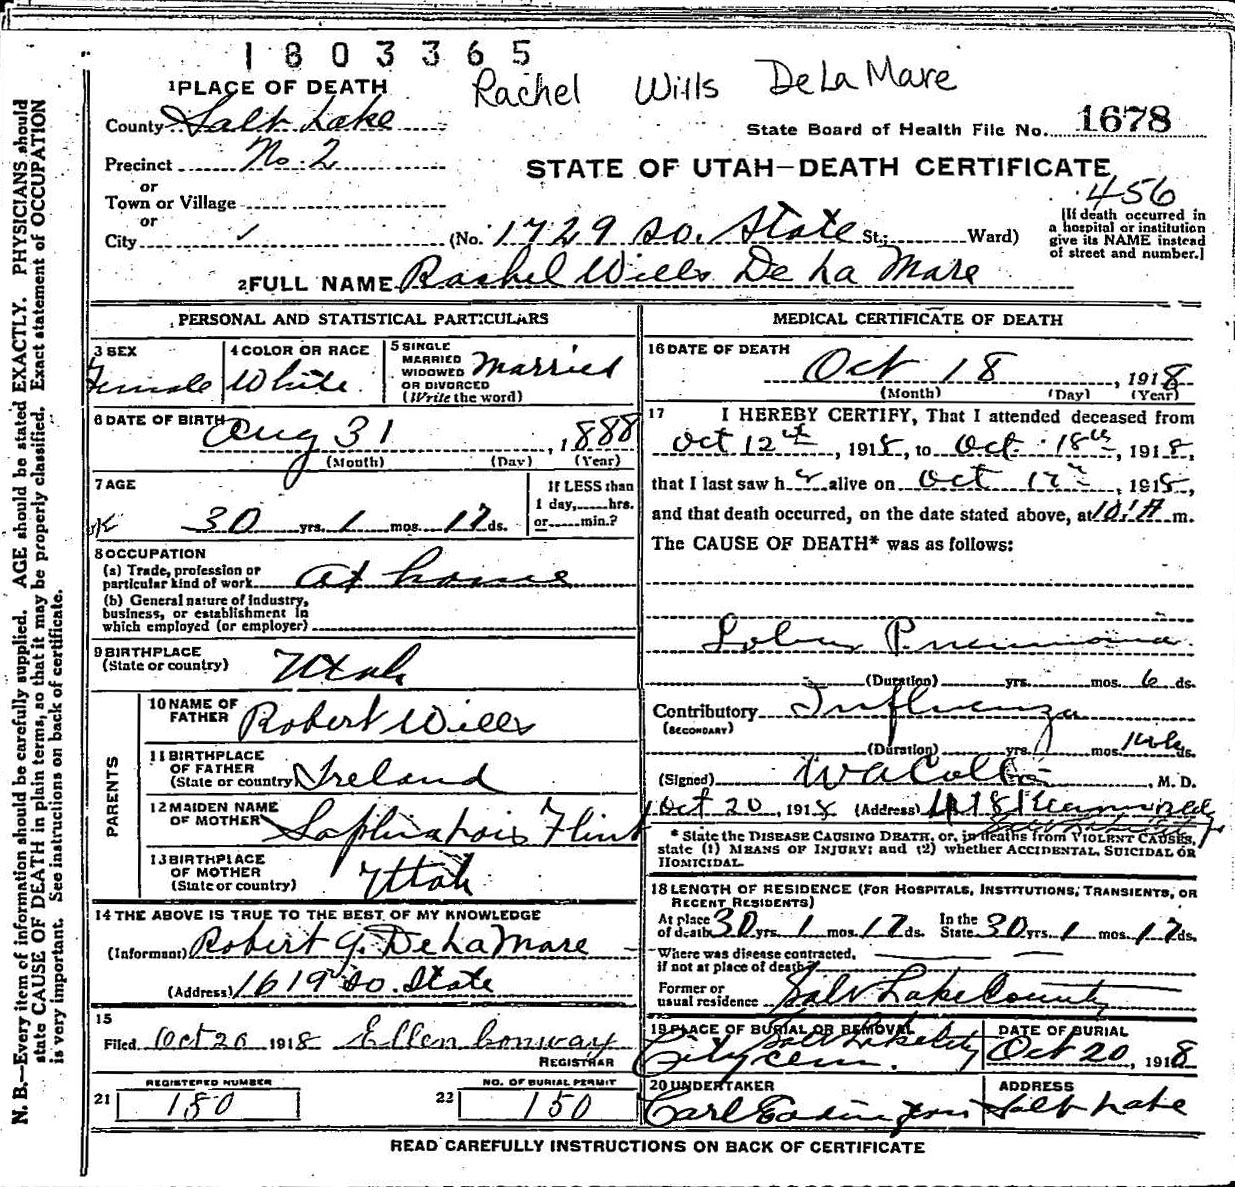 1803365
Rachel Wills DeLaMare
1 PLACE OF DEATH
County Salt Lake
State Board of Health File No. 1678
Precinct No. 2
STATE OF UTAH—DEATH CERTIFICATE
or
Town or Village
456
or
City
(No. 1729 So. State St.; Ward)
[If death occurred in
a hospital or institution
give its NAME instead
of street and number.]
2 FULL NAME Rachel Wills De La Mare
PERSONAL AND STATISTICAL PARTICULARS
3 SEX
Female
4 COLOR OR RACE
White
5 SINGLE
MARRIED
WIDOWED
OR DIVORCED
(Write the word)
Married
6 DATE OF BIRTH Aug 31, 1888
(Month) (Day) (Year)
7 AGE
30 yrs. 1 mos. 17 ds.
If LESS than
1 day, hrs.
or min.?
8 OCCUPATION
(a) Trade, profession or
particular kind of work At home
(b) General nature of industry,
business, or establishment in
which employed (or employer)
9 BIRTHPLACE
(State or country) Utah
PARENTS
10 NAME OF
FATHER Robert Wills
11 BIRTHPLACE
OF FATHER
(State or country) Ireland
12 MAIDEN NAME
OF MOTHER Flint
13 BIRTHPLACE
OF MOTHER
(State or country) Utah
14 THE ABOVE IS TRUE TO THE BEST OF MY KNOWLEDGE
(Informant) Robert G. De La Mare
(Address) 1619 So. State
15
Filed Oct 20 1918 Ellen Conway
REGISTRAR
REGISTERED NUMBER
21 150
NO. OF BURIAL PERMIT
22 150
MEDICAL CERTIFICATE OF DEATH
16 DATE OF DEATH
Oct 18, 1918
(Month) (Day) (Year)
17 I HEREBY CERTIFY, That I attended deceased from
Oct 12th, 1918, to Oct. 18th, 1918,
that I last saw her alive on Oct 17th, 1918,
and that death occurred, on the date stated above, at m.
The CAUSE OF DEATH* was as follows:
Lobar Pneumonia
(Duration) yrs. mos. 6 ds.
Contributory Influenza
(SECONDARY)
(Duration) yrs. mos. ds.
(Signed) M. D.
Oct 20, 1918 (Address)
* State the DISEASE CAUSING DEATH, or, in deaths from VIOLENT CAUSES,
state (1) MEANS OF INJURY; and (2) whether ACCIDENTAL, SUICIDAL OR
HOMICIDAL.
18 LENGTH OF RESIDENCE (FOR HOSPITALS, INSTITUTIONS, TRANSIENTS, OR
RECENT RESIDENTS)
At place
of death 30 yrs. 1 mos. 17 ds.
In the
State 30 yrs. 1 mos. 17 ds.
Where was disease contracted,
if not at place of death?
Former or
usual residence Salt Lake County
19 PLACE OF BURIAL OR REMOVAL
Salt Lake City
City Cem.
DATE OF BURIAL
Oct 20, 1918
20 UNDERTAKER
Carl
ADDRESS
Salt Lake
READ CAREFULLY INSTRUCTIONS ON BACK OF CERTIFICATE
N. B.—Every item of information should be carefully supplied. AGE should be stated EXACTLY. PHYSICIANS should
state CAUSE OF DEATH in plain terms, so that it may be properly classified. Exact statement of OCCUPATION
is very important. See instructions on back of certificate.